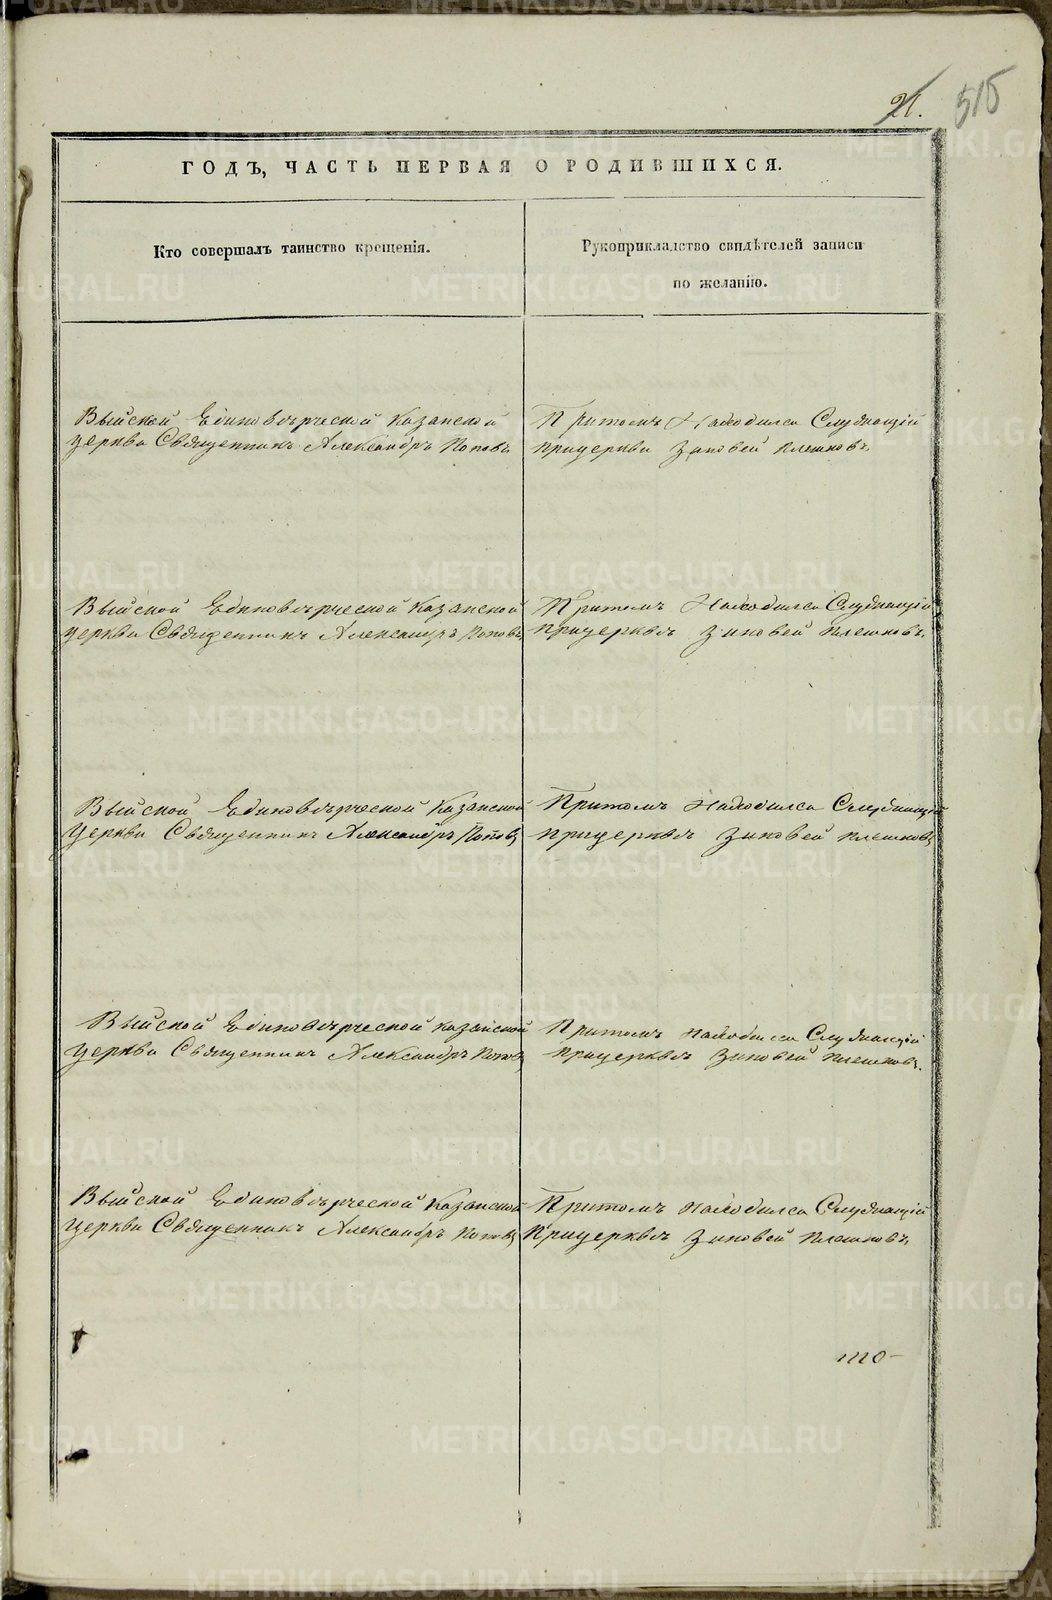 21. 515
ГОДЪ, ЧАСТЬ ПЕРВАЯ О РОДИВШИХСЯ.
Кто совершалъ таинство крещенія.
Рукоприкладство свидѣтелей записи
по желанію.
Выйской Единовѣрческой Казанской
церкви Священникъ Александръ Поповъ
Притомъ Находился Служащій
прицеркви Зиновей Плешковъ
Выйской Единовѣрческой Казанской
церкви Священникъ Александръ Поповъ
Притомъ Находился Служащій
прицерквѣ Зиновей Плешковъ
Выйской Единовѣрческой Казанской
церкви Священникъ Александръ Поповъ
Притомъ Находился Служащій
прицерквѣ Зиновей Плешковъ
Выйской Единовѣрческой Казанской
церкви Священникъ Александръ Поповъ
Притомъ находился Служащій
прицерквѣ Зиновей Плешковъ.
Выйской Единовѣрческой Казанской
церкви Священникъ Александръ Поповъ
Притомъ находился Служащій
Прицерквѣ Зиновей Плешковъ
то-
METRIKI.GASO-URAL.RU